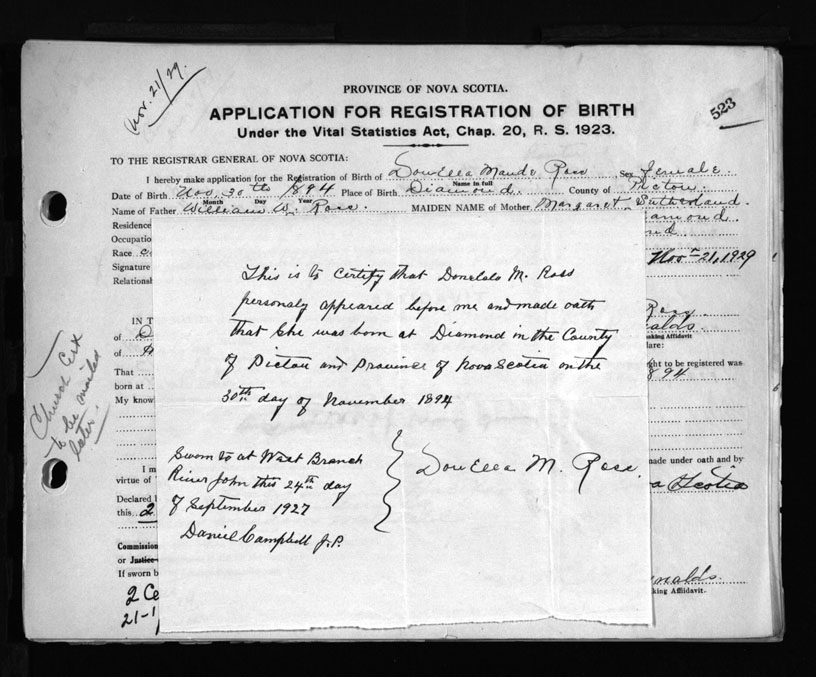 Nov. 21/29.
523
PROVINCE OF NOVA SCOTIA.
APPLICATION FOR REGISTRATION OF BIRTH
Under the Vital Statistics Act, Chap. 20, R. S. 1923.
TO THE REGISTRAR GENERAL OF NOVA SCOTIA:
I hereby make application for the Registration of Birth of DonElla Maude Ross Sex female
Name in full
Date of Birth Nov. 30th 1894 Place of Birth Diamond County of Pictou
Month Day Year
Name of Father William W. Ross. MAIDEN NAME of Mother Margaret Sutherland
Residence
Occupation
Race
Signature Nov 21, 1929
Relationship
This is to Certify that M. Ross
personaly appeared before me and made oath
that She was born at Diamond in the County
of Pictou and Province of Nova Scotia on the
30th day of November 1894
Sworn to at West Branch
River John this 24th day
of September 1927
Daniel Campbell J.P.
DonElla M. Ross.
Church Cert
to be mailed
later.
IN T
of
of
That
born at
My know
I m
virtue of
Declared
this 2
Commission
or Justice
If sworn b
21-1
Ross
nalds.
aking Affidavit
lare:
ght to be registered was
1894
made under oath and by
a Scotia
nalds.
king Affidavit.